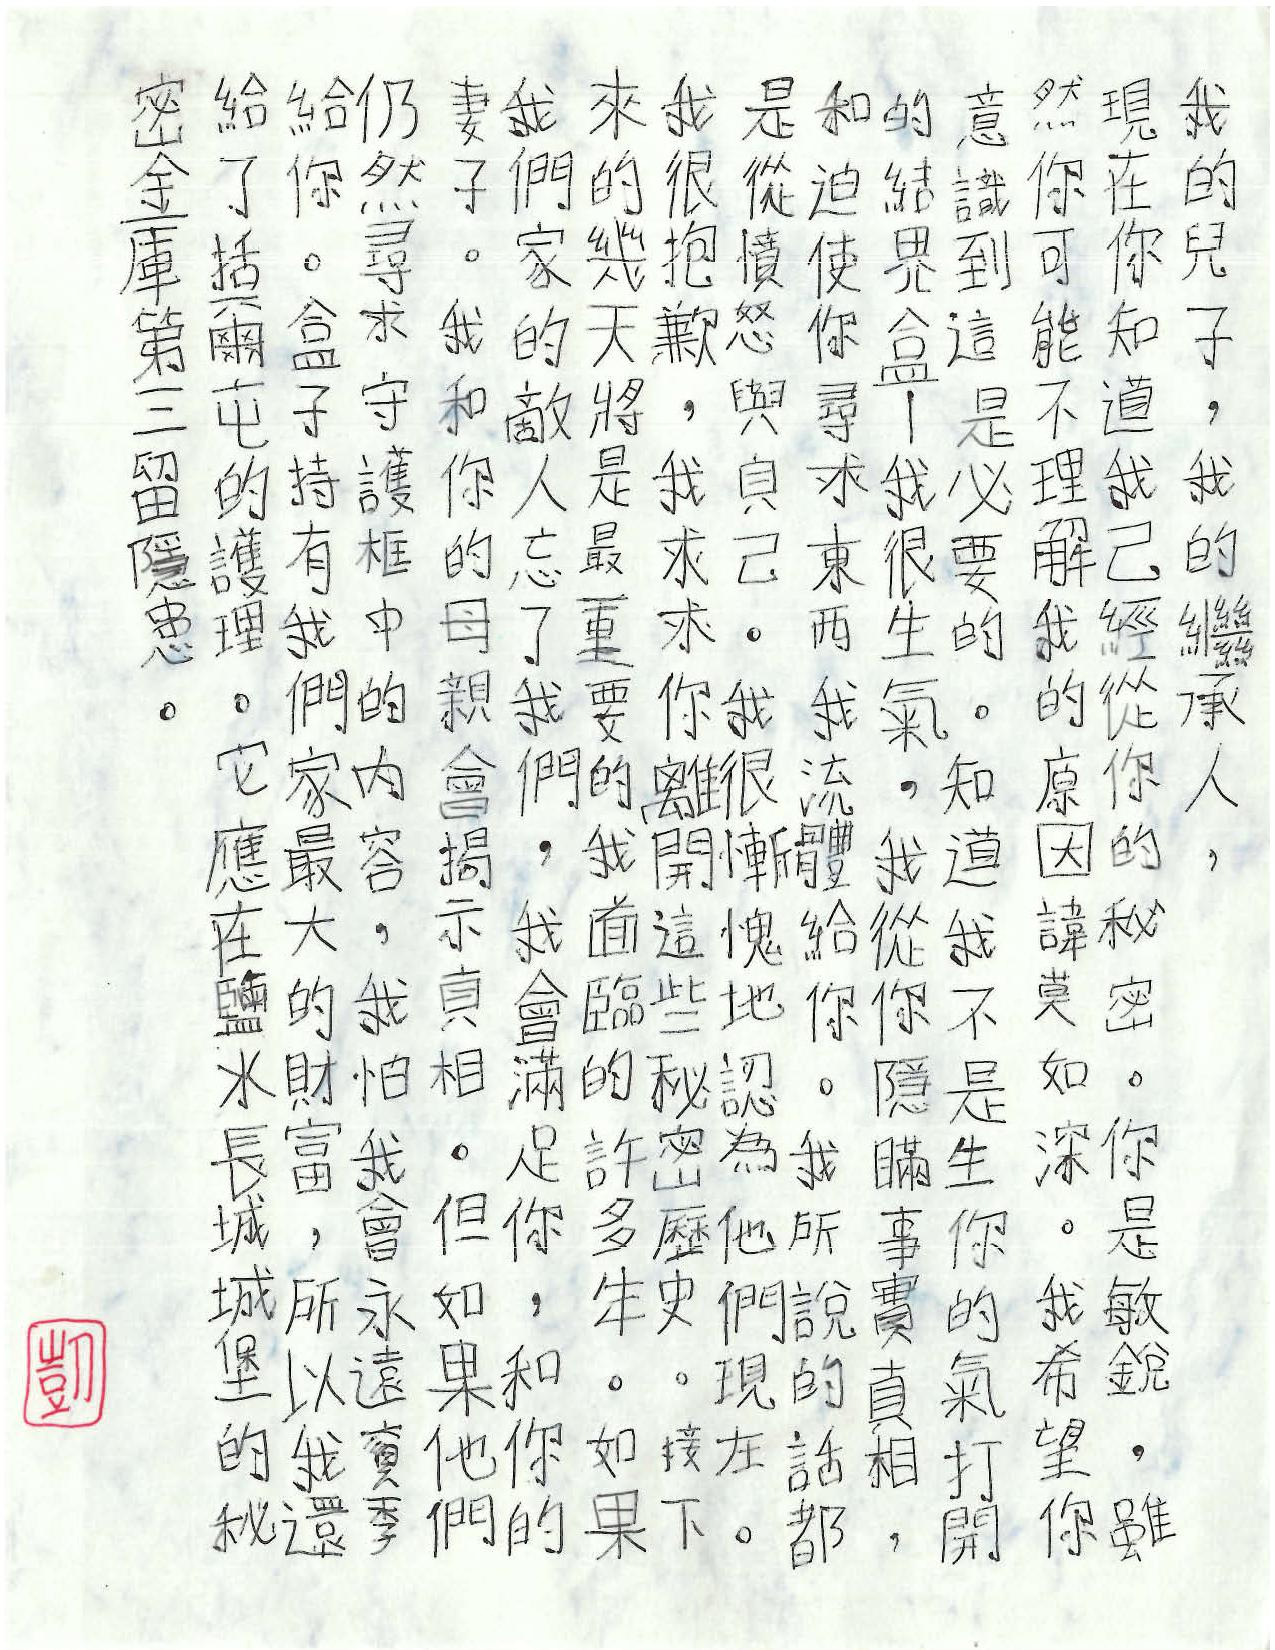 我的兒子，我的繼承人，
現在你知道我己經從你的秘密。你是敏銳，雖
然你可能不理解我的原因諱莫如深。我希望你
意識到這是必要的。知道我不是生你的氣打開
的結界盒－我很生氣，我從你隱瞞事實真相，
和迫使你尋求東西我流體給你。我所說的話都
是從憤怒與自己。我很慚愧地認為他們現在。
我很抱歉，我求求你離開這些秘密歷史。接下
來的幾天將是最重要的我面臨的許多年。如果
我們家的敵人忘了我們，我會滿足你，和你的
妻子。我和你的母親會揭示真相。但如果他們
仍然尋求守護框中的内容，我怕我會永遠 季
給你。盒子持有我們家最大的財富，所以我還
給了括爾屯的護理。它應在鹽水長城城堡的秘
密金庫第三留隱患。
凱